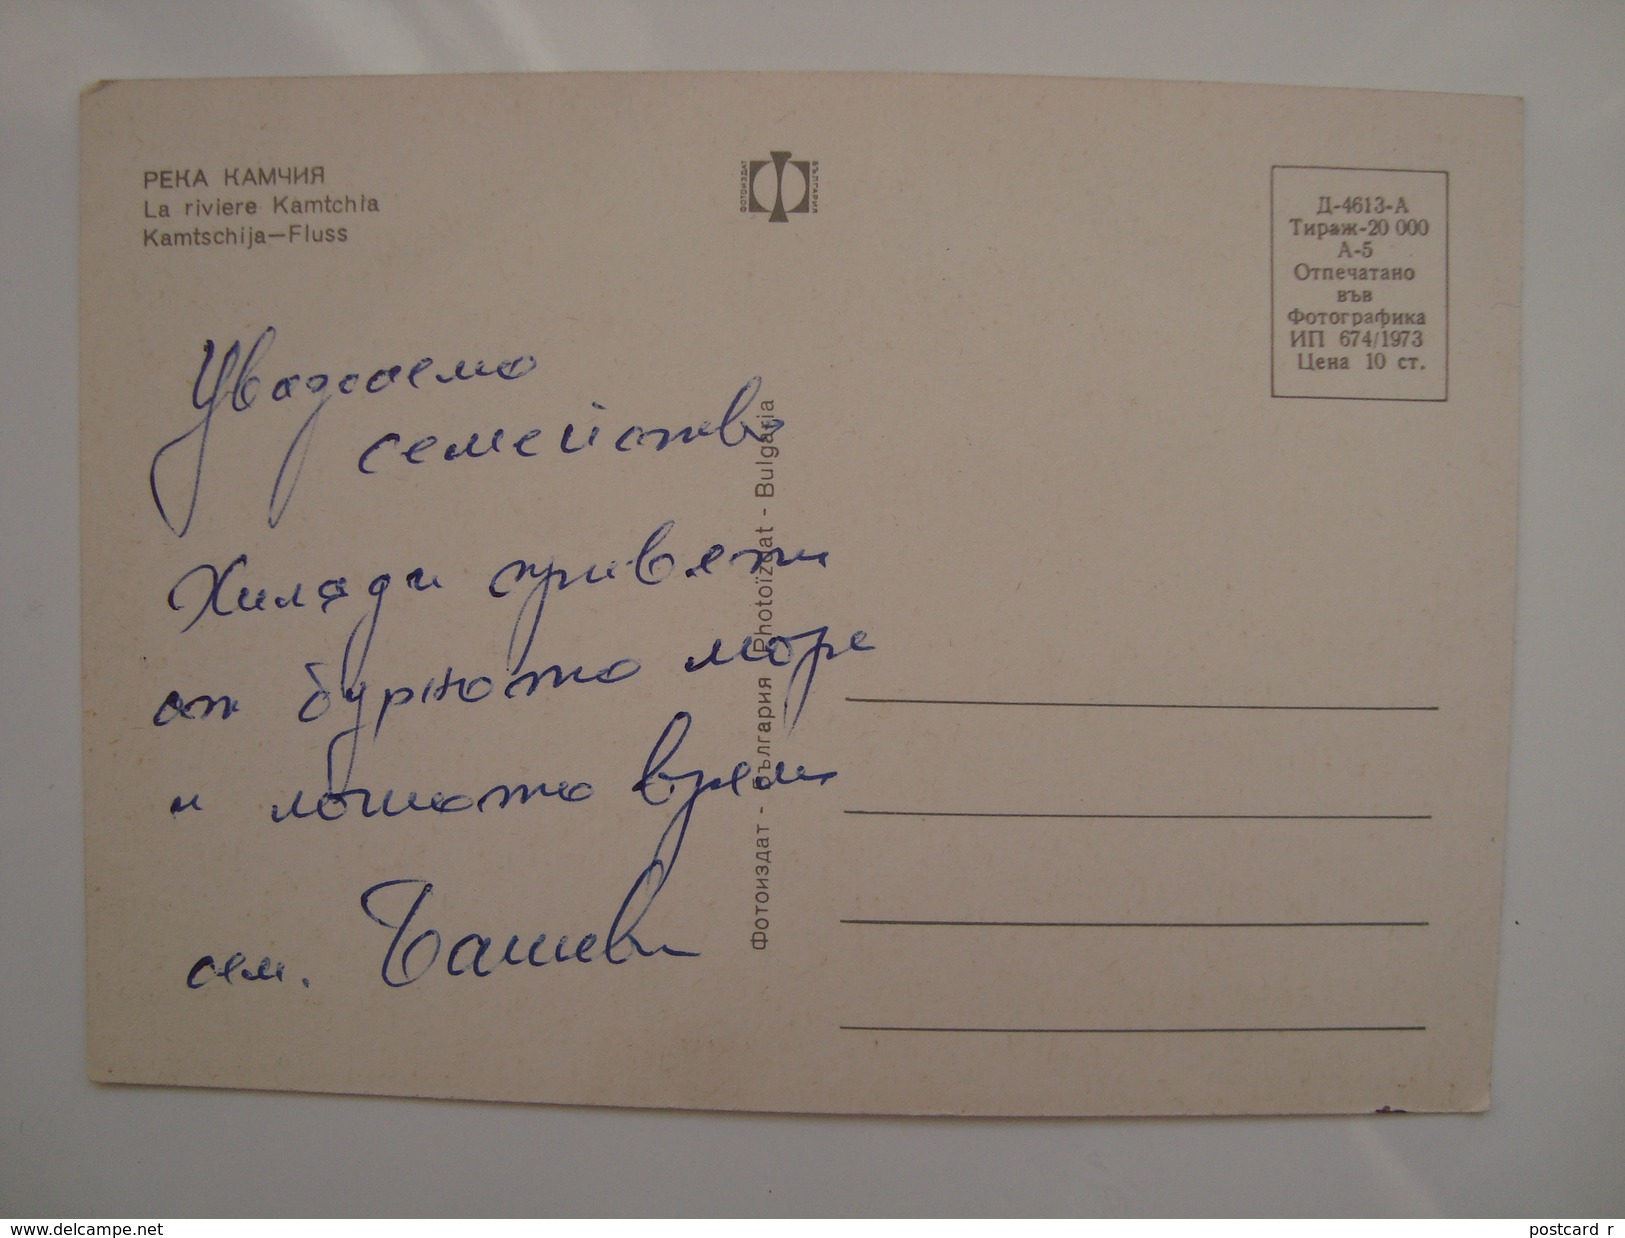 РЕКА КАМЧИЯ
La riviere Kamtchia
Kamtschija—Fluss
ФОТОИЗДАТ
БЪЛГАРИЯ
Д-4613-А
Тираж-20 000
А-5
Отпечатано
във
Фотографика
ИП 674/1973
Цена 10 ст.
Уважаемо
семейство
Хиляди привети
от бурното море
и лошото време
сем. Башеви
Фотоиздат - България Photoïzdat - Bulgaria
www.delcampe.net
postcard_r